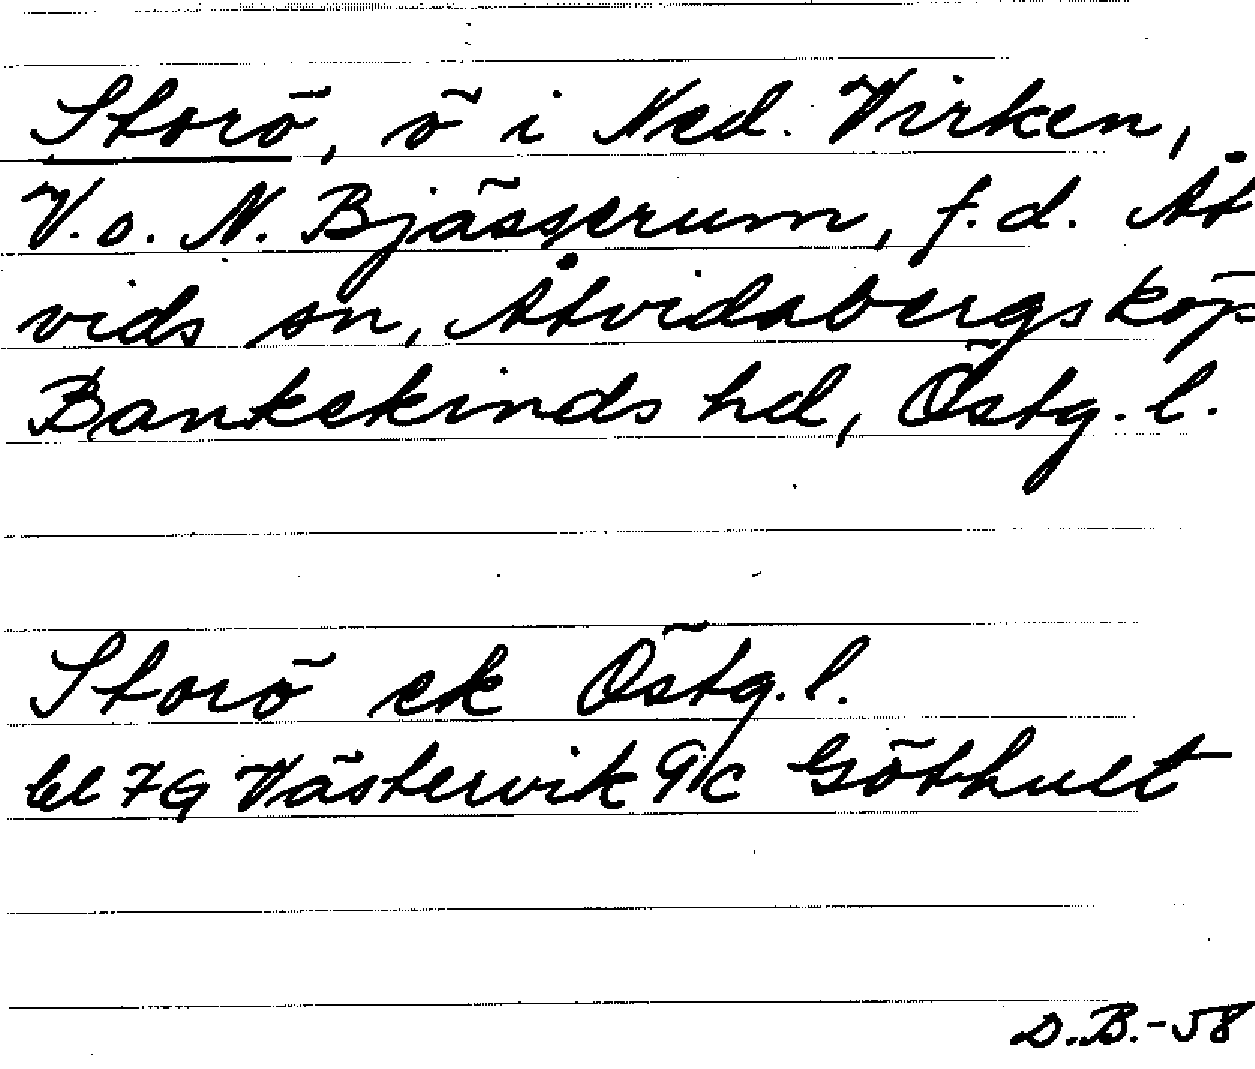 Storö, ö i Ned. Virken,
V. o. N. Bjässerum, f.d. Åt
vids sn, Åtvidabergs köp
Bankekinds hd, Östg. l.
Storö ek Östg. l.
bl 7G Västervik 9c Göthult
D.B.-58